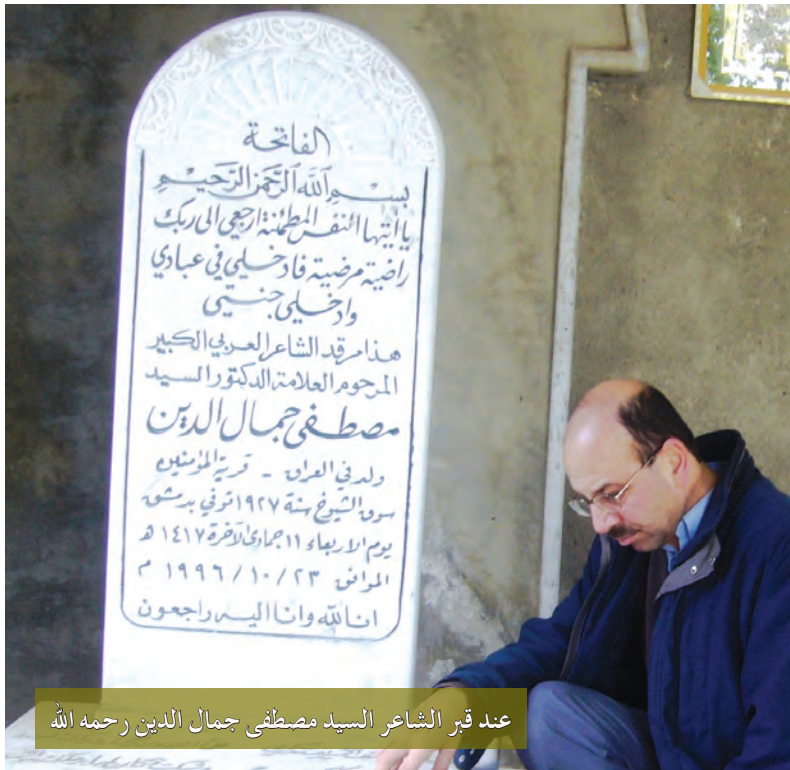 الفاتحة
بسم الله الرحمن الرحيم
يا ايتها النفس المطمئنة ارجعي الى ربك
راضية مرضية فادخلي في عبادي
وادخلي جنتي
هذا مرقد الشاعر العربي الكبير
المرحوم العلامة الدكتور السيد
مصطفى جمال الدين
ولد في العراق - قرية المؤمنين
سوق الشيوخ سنة ١٩٢٧ توفي بدمشق
يوم الاربعاء ١١ جمادى الآخرة ١٤١٧ هـ
الموافق ٢٣ / ١٠ / ١٩٩٦ م
انا لله وانا اليه راجعون
عند قبر الشاعر السيد مصطفى جمال الدين رحمه الله